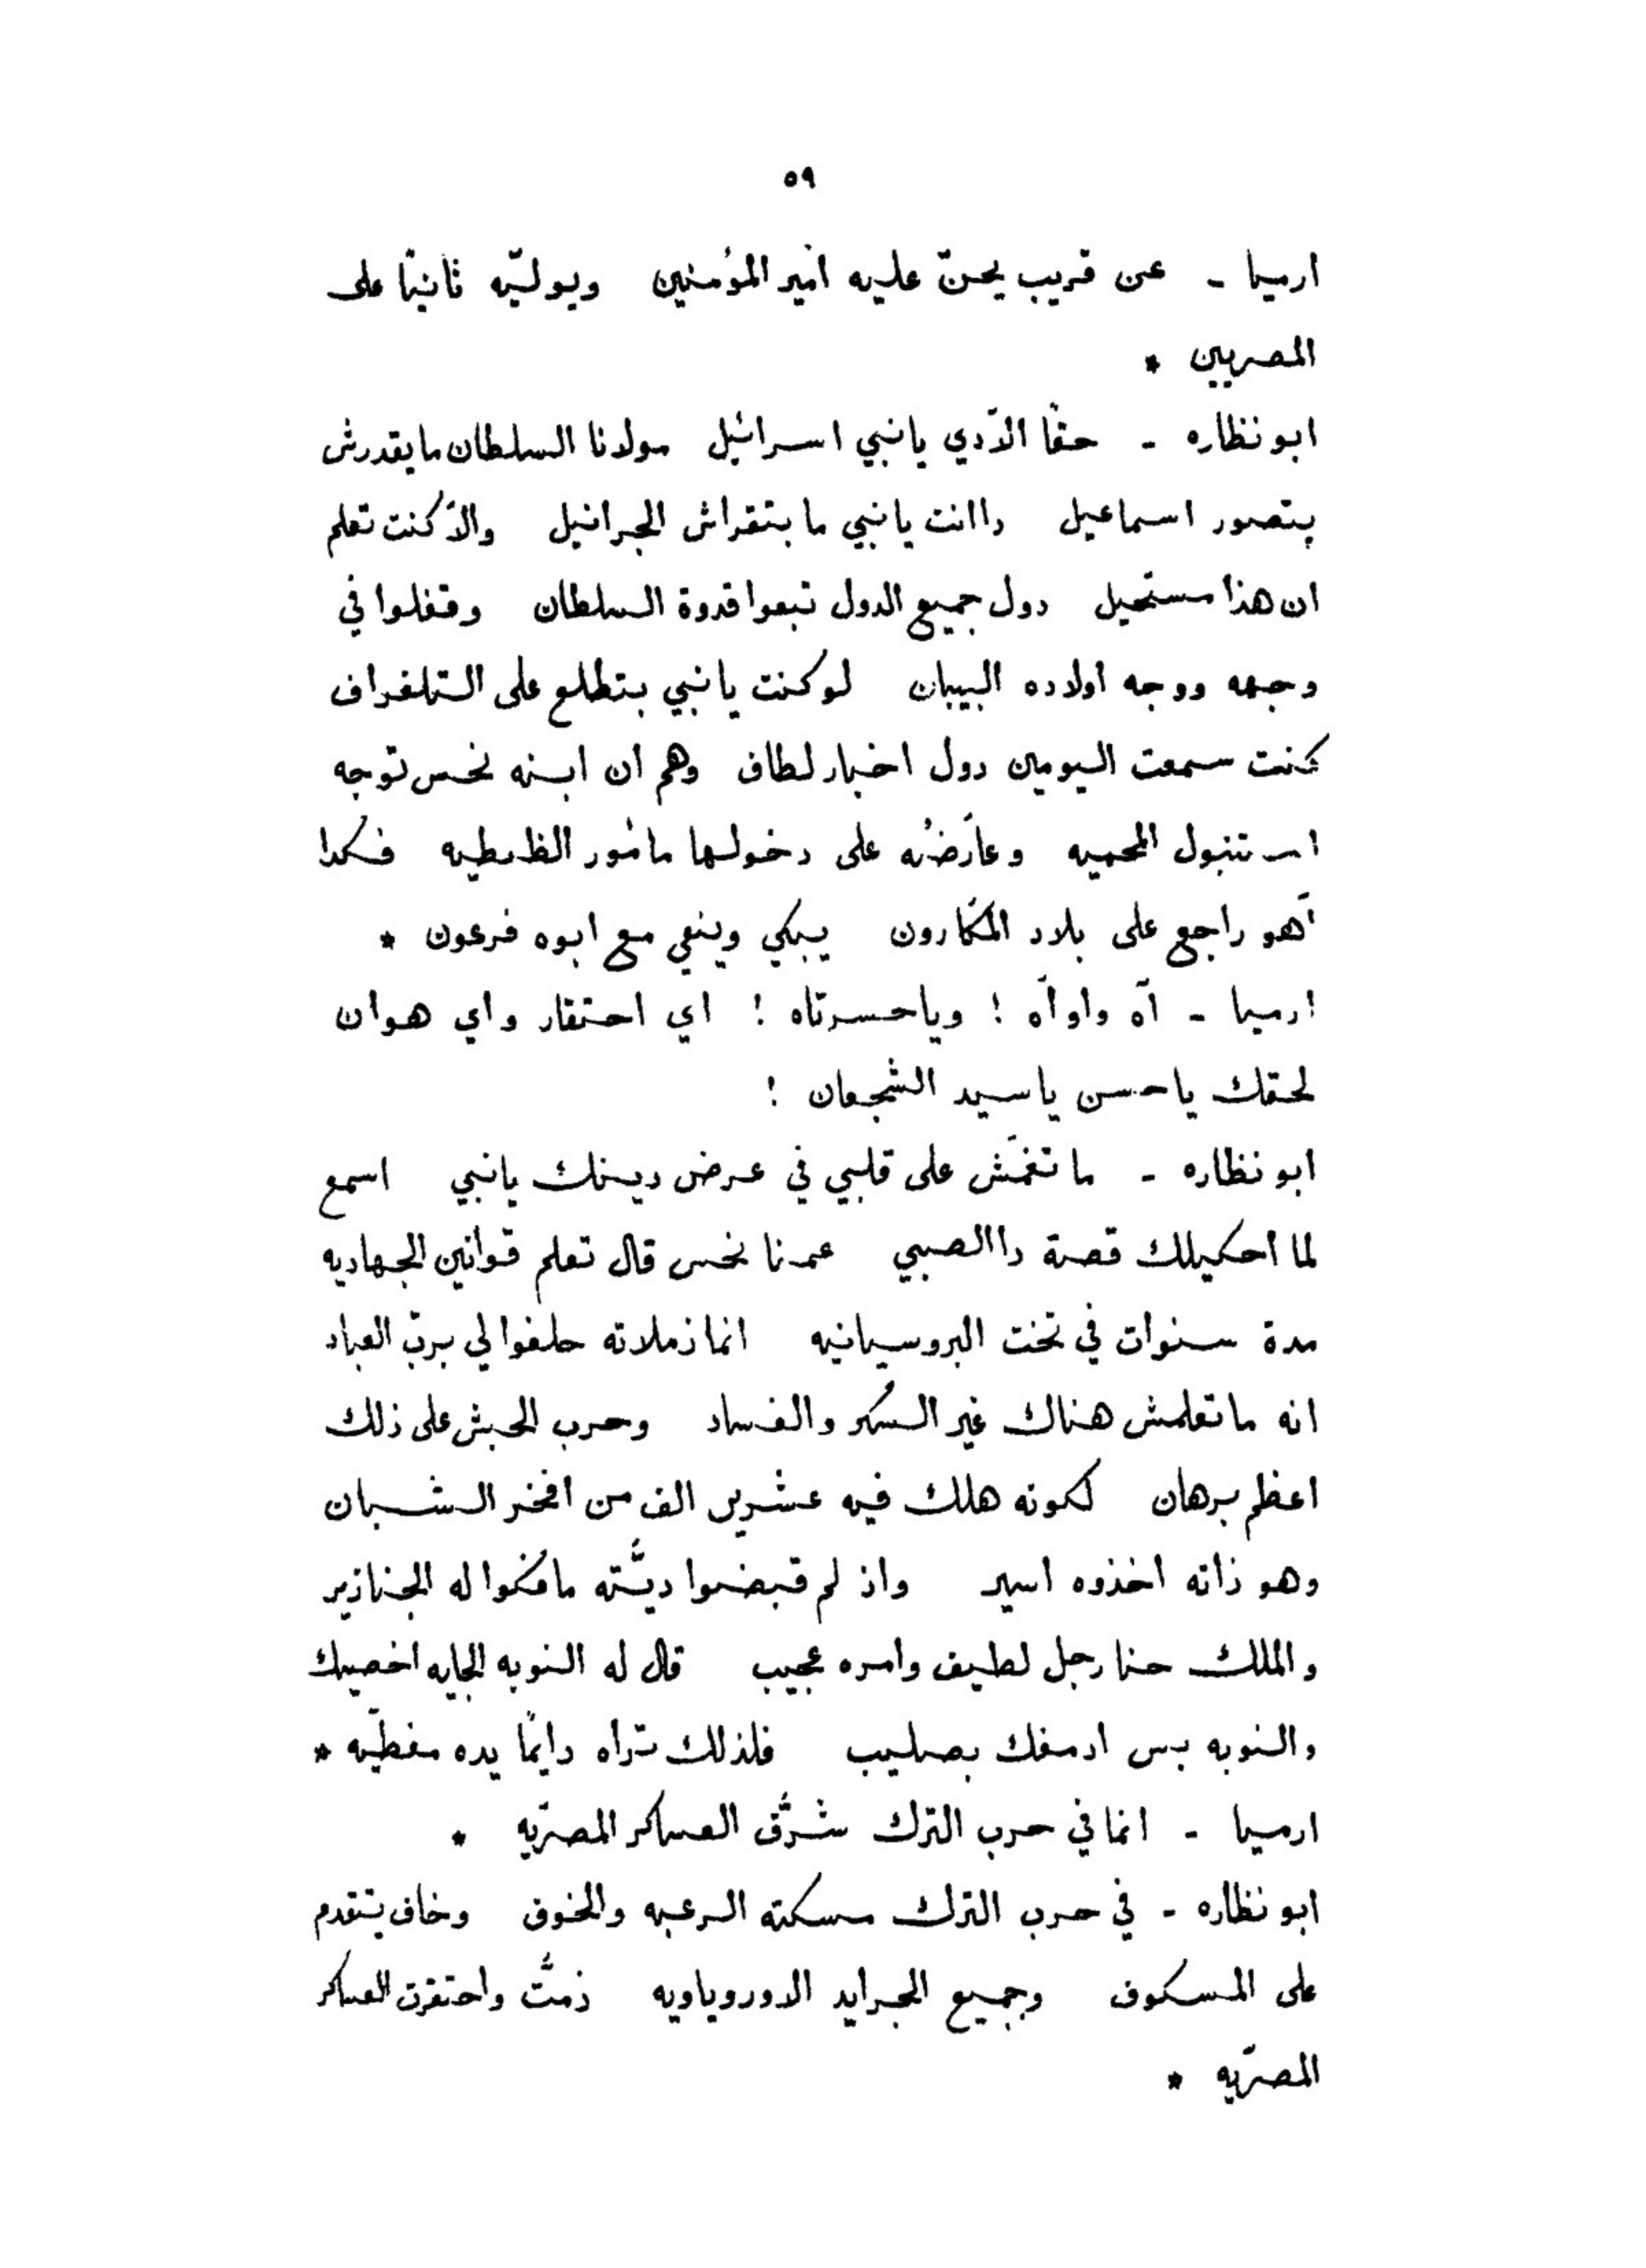 ٥٩
ارميا - عن قريب يحنّ عليه أمير المؤمنين ويوليّه ثانيًا على
المصريين *
ابو نظاره - حقًا الآدي يا نبي اسرائيل مولانا السلطان ما يقدرش
يتصور اسماعيل دا انت يا نبي ما بتقراش الجرانيل والّا كنت تعلم
ان هذا مستحيل دول جميع الدول تبعوا قدوة السلطان وقفلوا في
وجهه ووجه اولاده البيبان لو كنت يا نبي بتطلع على التلغراف
كنت سمعت اليومين دول اخبار لطاف وهم ان ابنه نحس توجه
استنبول المحميه وعارضُه على دخولها مأمور الظبطيه فكدا
أهو راجع على بلاد المكارون يبكي وينعي مع ابوه فرعون *
ارميا - آه واوآه ! وياحسرتاه ! اي احتقار واي هوان
لحقك يا حسن يا سيد الشجعان !
ابو نظاره - ما تغمّش على قلبي في عرض دينك يا نبي اسمع
لما احكيلك قصة دا الصبي عمرنا نحس قال تعلم قوانين الجهاديه
مدة سنوات في تخت البروسيانيه انما زملاته حلفوا لي بربّ العباد
انه ما تعلمش هناك غير السُكر والفساد وحرب الحبش على ذلك
اعظم برهان لكونه هلك فيه عشرين الف من افخر الشبان
وهو ذاته اخذوه اسير واذ لم قبضوا ديّته ما فكوا له الجنازير
والملك حنا رجل لطيف وامره عجيب قال له النوبه الجايه اخصيك
والنوبه بس ادمغك بصليب فلذلك تراه دايمًا يده مغطّيه *
ارميا - انما في حرب الترك شرّف العساكر المصريّه *
ابو نظاره - في حرب الترك مسكته الرعبه والخوف وخاف يتقدم
على المسكوف وجميع الجرايد الاوروپاويه ذمتّ واحتقرت العساكر
المصريّه *